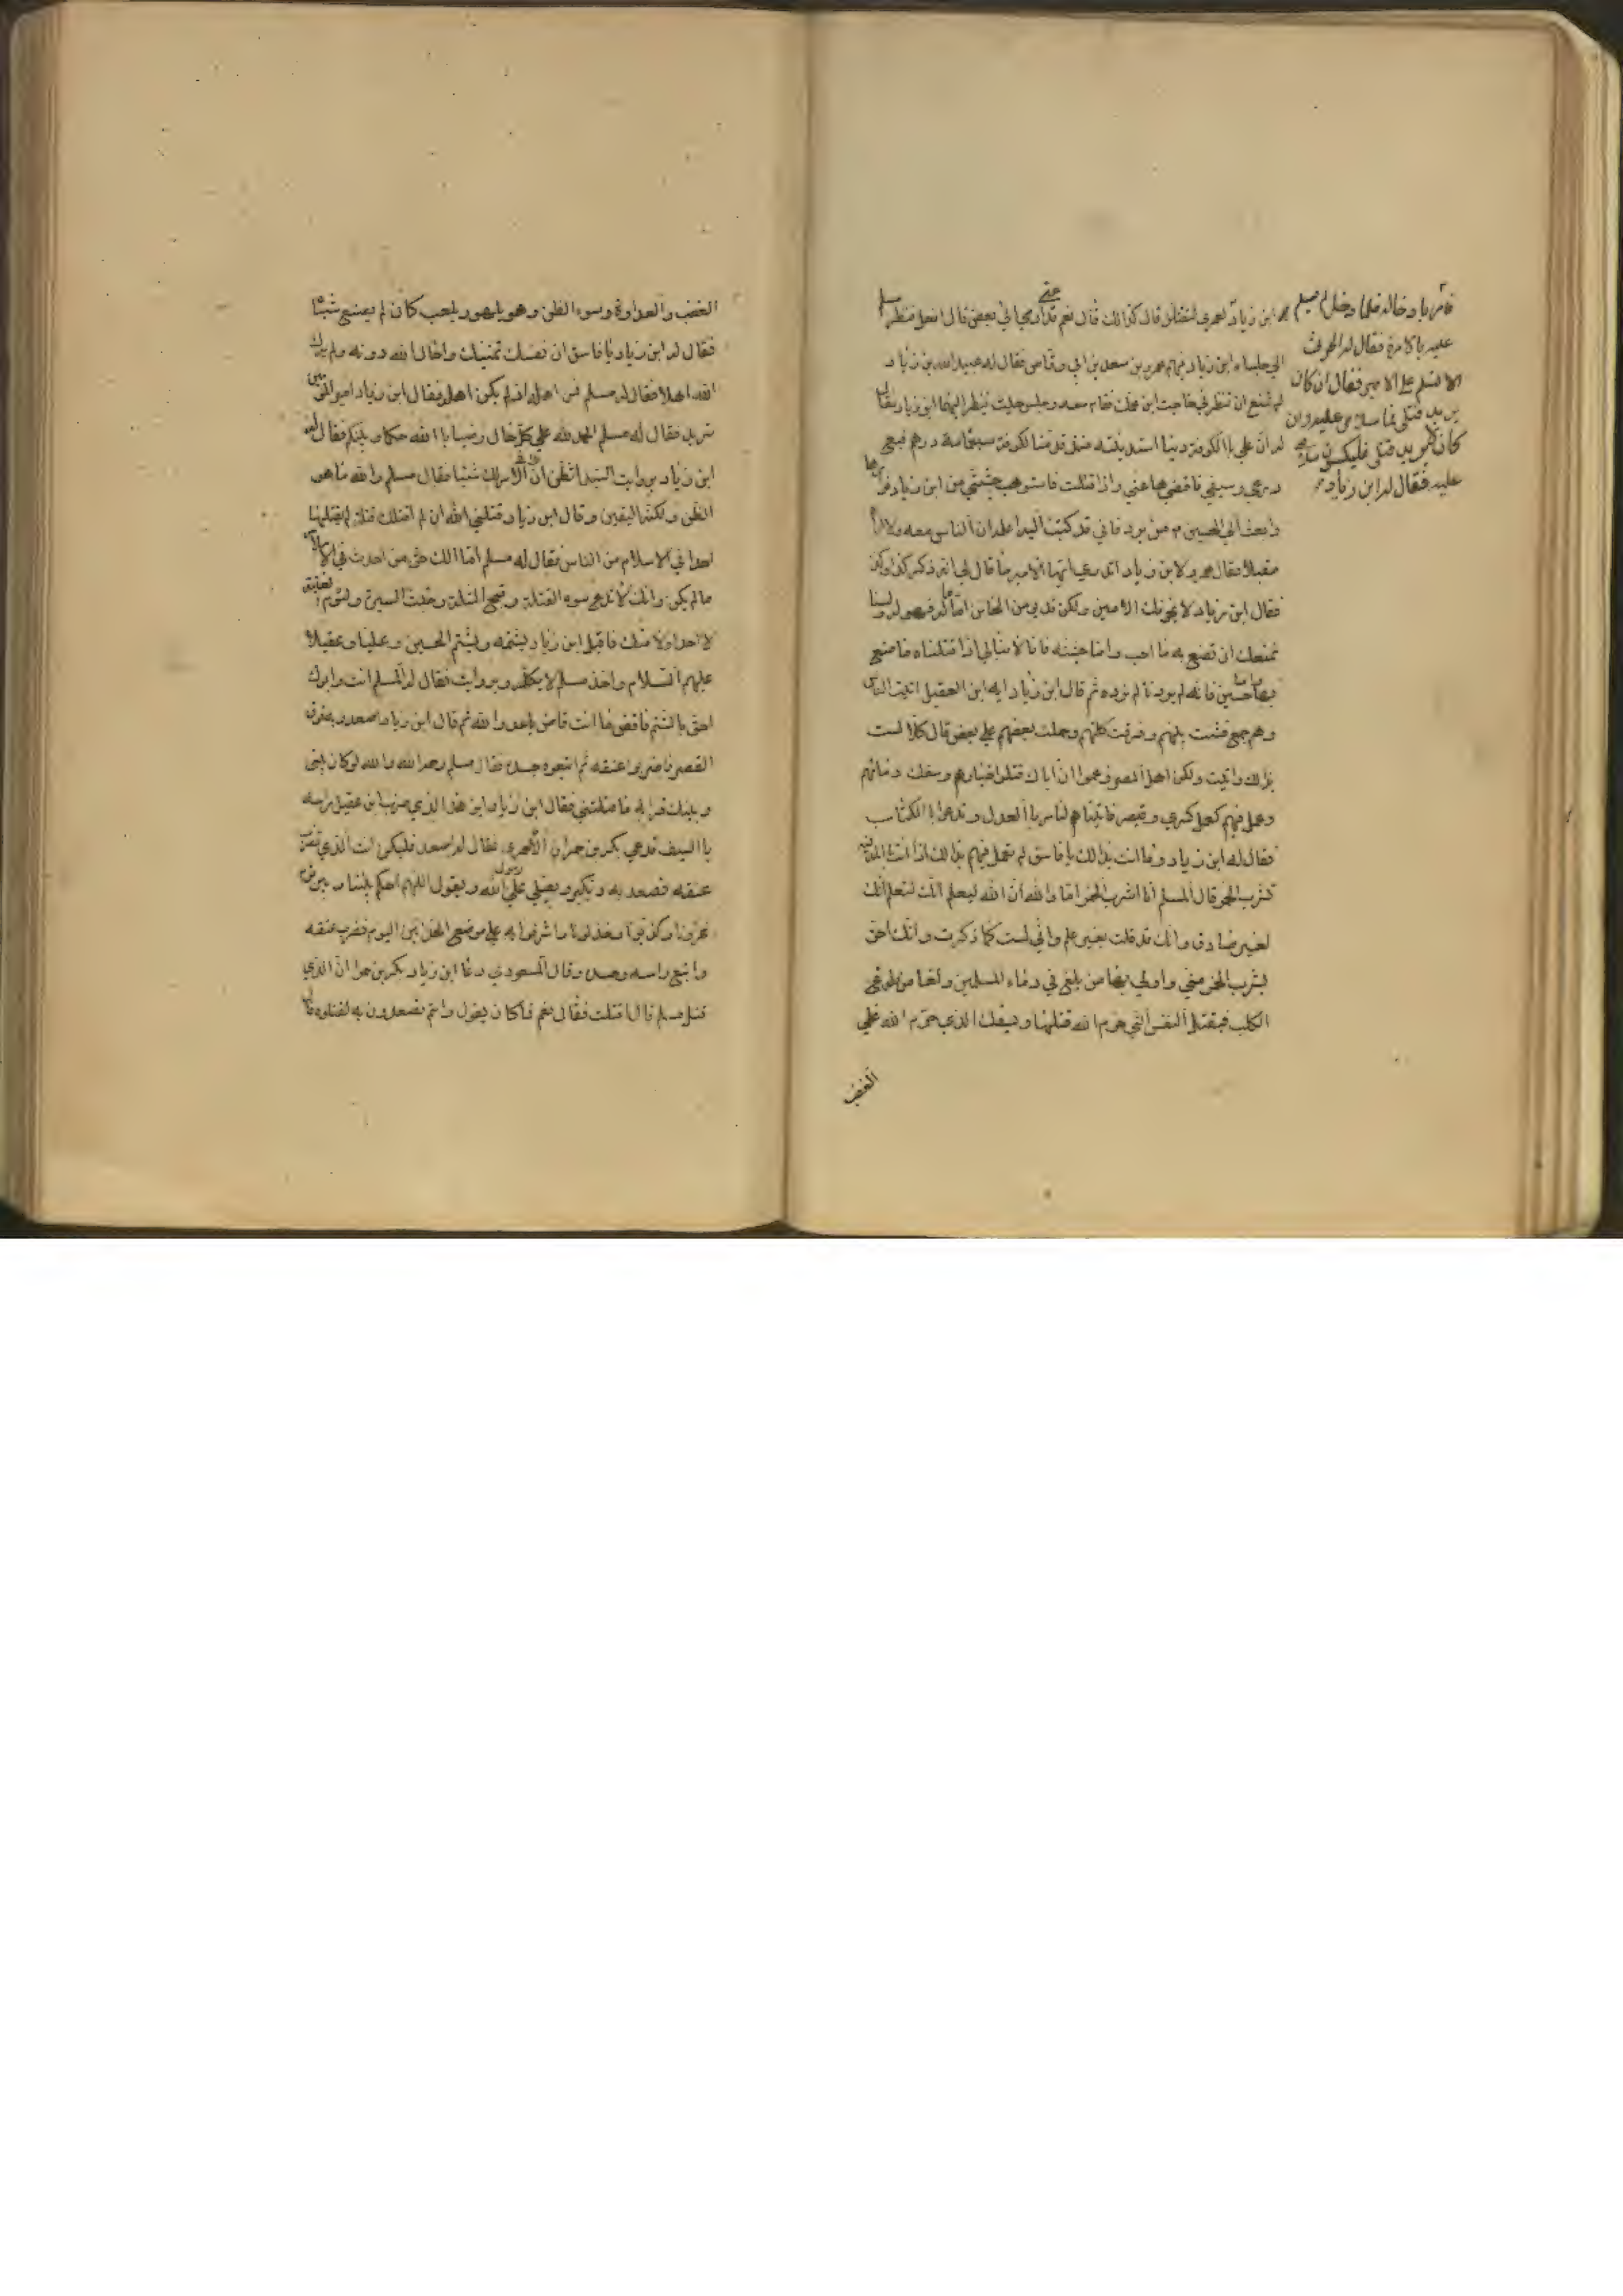 ابن زياد لعمري لتقتلن قال كذالك قال نعم قال فدعني اوصي الي بعض قال افعل فنظر مسلم
الي جلساء ابن زياد فيهم عمر بن سعد بن ابي وقاص فقال له عبيد الله بن زياد
لم تمتنع ان تنظر في حاجت ابن عمك فقام معه وجلس حيث ينظر اليهما ابن زياد فقال
له ان علي با الكوفة دينا استدينته منذ قدمت الكوفة سبعمامة درهم فبع
درعي وسيفي فاقضها عني واذا قتلت فاستوهب جثتي من ابن زياد فوارها
وابعث الي الحسين م من يرد فاني قد كتبت اليه اعلمه ان الناس معه ولا اراه
مقبلا فقال عمر لابن زياد اتدري ايها الامير ما قال لي انه ذكر كذا وكذا
فقال ابن زياد لا يخونك الامين ولكن قد يومن الخاين اما ماله فهو له ولسنا
نمنعك ان تصنع به ما احب واما جثته فانا لا نبالي اذا قتلناه ما صنع
بها واما حسين فانه لم يردنا لم نرده ثم قال ابن زياد ايه ابن العقيل اتيت الناس
وهم جميع فشتت بينهم وفرقت كلمتهم وحملت بعضهم علي بعض قال كلا لست
بذلك واتيت ولكن اهل المصر زعموا ان اباك قتل خيارهم وسفك دمائهم
وعمل فيهم كعمل كسري وقيصر فاتيناهم لنامر با العدل وندعو با الكتاب
فقال له ابن زياد وما انت بذالك يا فاسق لم تعمل فيهم بذالك اذ انت بالمدينة
تشرب الخمر قال المسلم انا اشرب الخمر اما والله ان الله ليعلم انك لتعلم انك
لغير صادق وانك قد قلت بغير علم واني لست كما ذكرت وانك احق
بشرب الخمر مني واولي بها من يلغ في دماء المسلمين ولغا
الكلب فيقتل النفس التي حرم الله قتلها ويسفك الذي حرم الله علي
الغضب
فلما دخل لم يسلم
عليه با الامرة فقال له الحرث
الا تسلم علي الامير فقال ان كان
يريد قتلي فما سلامي عليه وان
كان لا يريد قتلي فليكثرن سلامي
عليه فقال له ابن زياد
الغضب والعداوة وسوء الظن وهو يلهو ويلعب كان لم يصنع شيئا
فقال له ابن زياد يا فاسق ان نفسك تمنيك واحال الله دونه ولم يرك
الله اهلا فقال له مسلم فمن اهله اذ لم يكن اهله فقال ابن زياد امير المؤمنين
يزيد فقال له مسلم الحمد لله علي كل حال رضينا با الله حكما وبينكم فقال له
ابن زياد اتظن ان لك في الامر شيئا فقال مسلم والله ما هو
الظن ولكنه اليقين وقال ابن زياد وقتلني الله ان لم اقتلك قتلة لم يقتلها
احدا في الاسلام من الناس فقال له مسلم اما انك احق من احدث في الاسلام
ما لم يكن وانك لا تدع سوء القتلة وقبح المثلة وخبث السيرة ولئوم
لا احد اولا منك فاقبل ابن زياد يشتمه ويشتم الحسين وعليا وعقيلا
عليهم السلام واخذ مسلم لا يكلمه وبروايت فقال له المسلم انت وابوك
احق با الشتم فاقض ما انت قاض يا عدو الله ثم قال ابن زياد اصعدوا به فوق
القصر فاضربوا عنقه ثم اتبعوه جسده فقال مسلم رحمه الله والله لو كان بيني
وبينك قرابه ما قتلتني فقال ابن زياد اين هذا الذي ضرب ابن عقيل راسه
با السيف فدعي بكر بن حمران الاحمري فقال له اصعد فليكن انت الذي تضرب
عنقه فصعد به وهو يكبر ويصلي علي رسول الله ويقول اللهم احكم بيننا وبين قوم
غرونا وكذبونا وخذلونا واشرفوا به علي موضع الحذائين اليوم فضرب عنقه
واتبع راسه جسده وقال المسعودي دعا ابن زياد بكر بن حمران الذي
قتل مسلم قال اقتلت فقال نعم فما كان يقول وانتم تصعدون به لتقتلوه قال